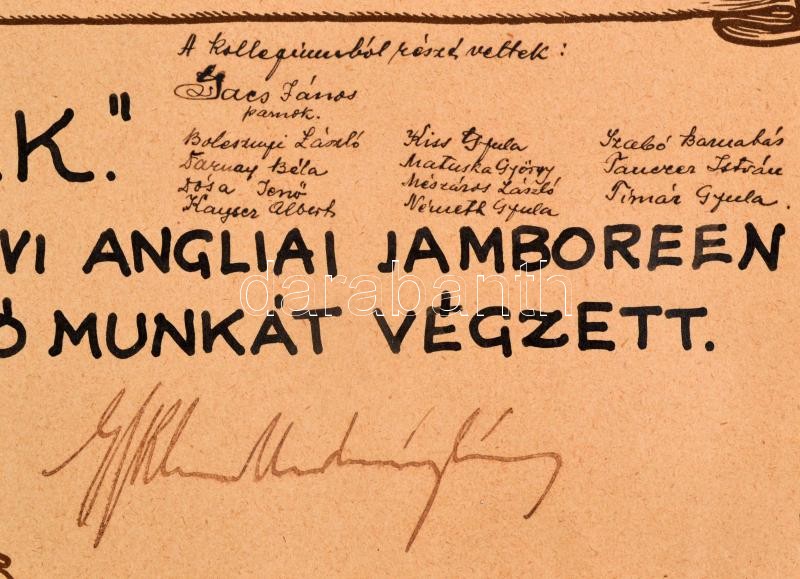 A kollegiumból részt vettek:
Gacs János
parnok.
Bolesznyi László Kiss Gyula Szabó Barnabás
Darnay Béla Matuska György Tanczer István
Dósa Jenő Mészáros László Timár Gyula.
Kayser Albert Németh Gyula
.K."
VI ANGLIAI JAMBOREEN
Ó MUNKÁT VÉGZETT.
darabanth